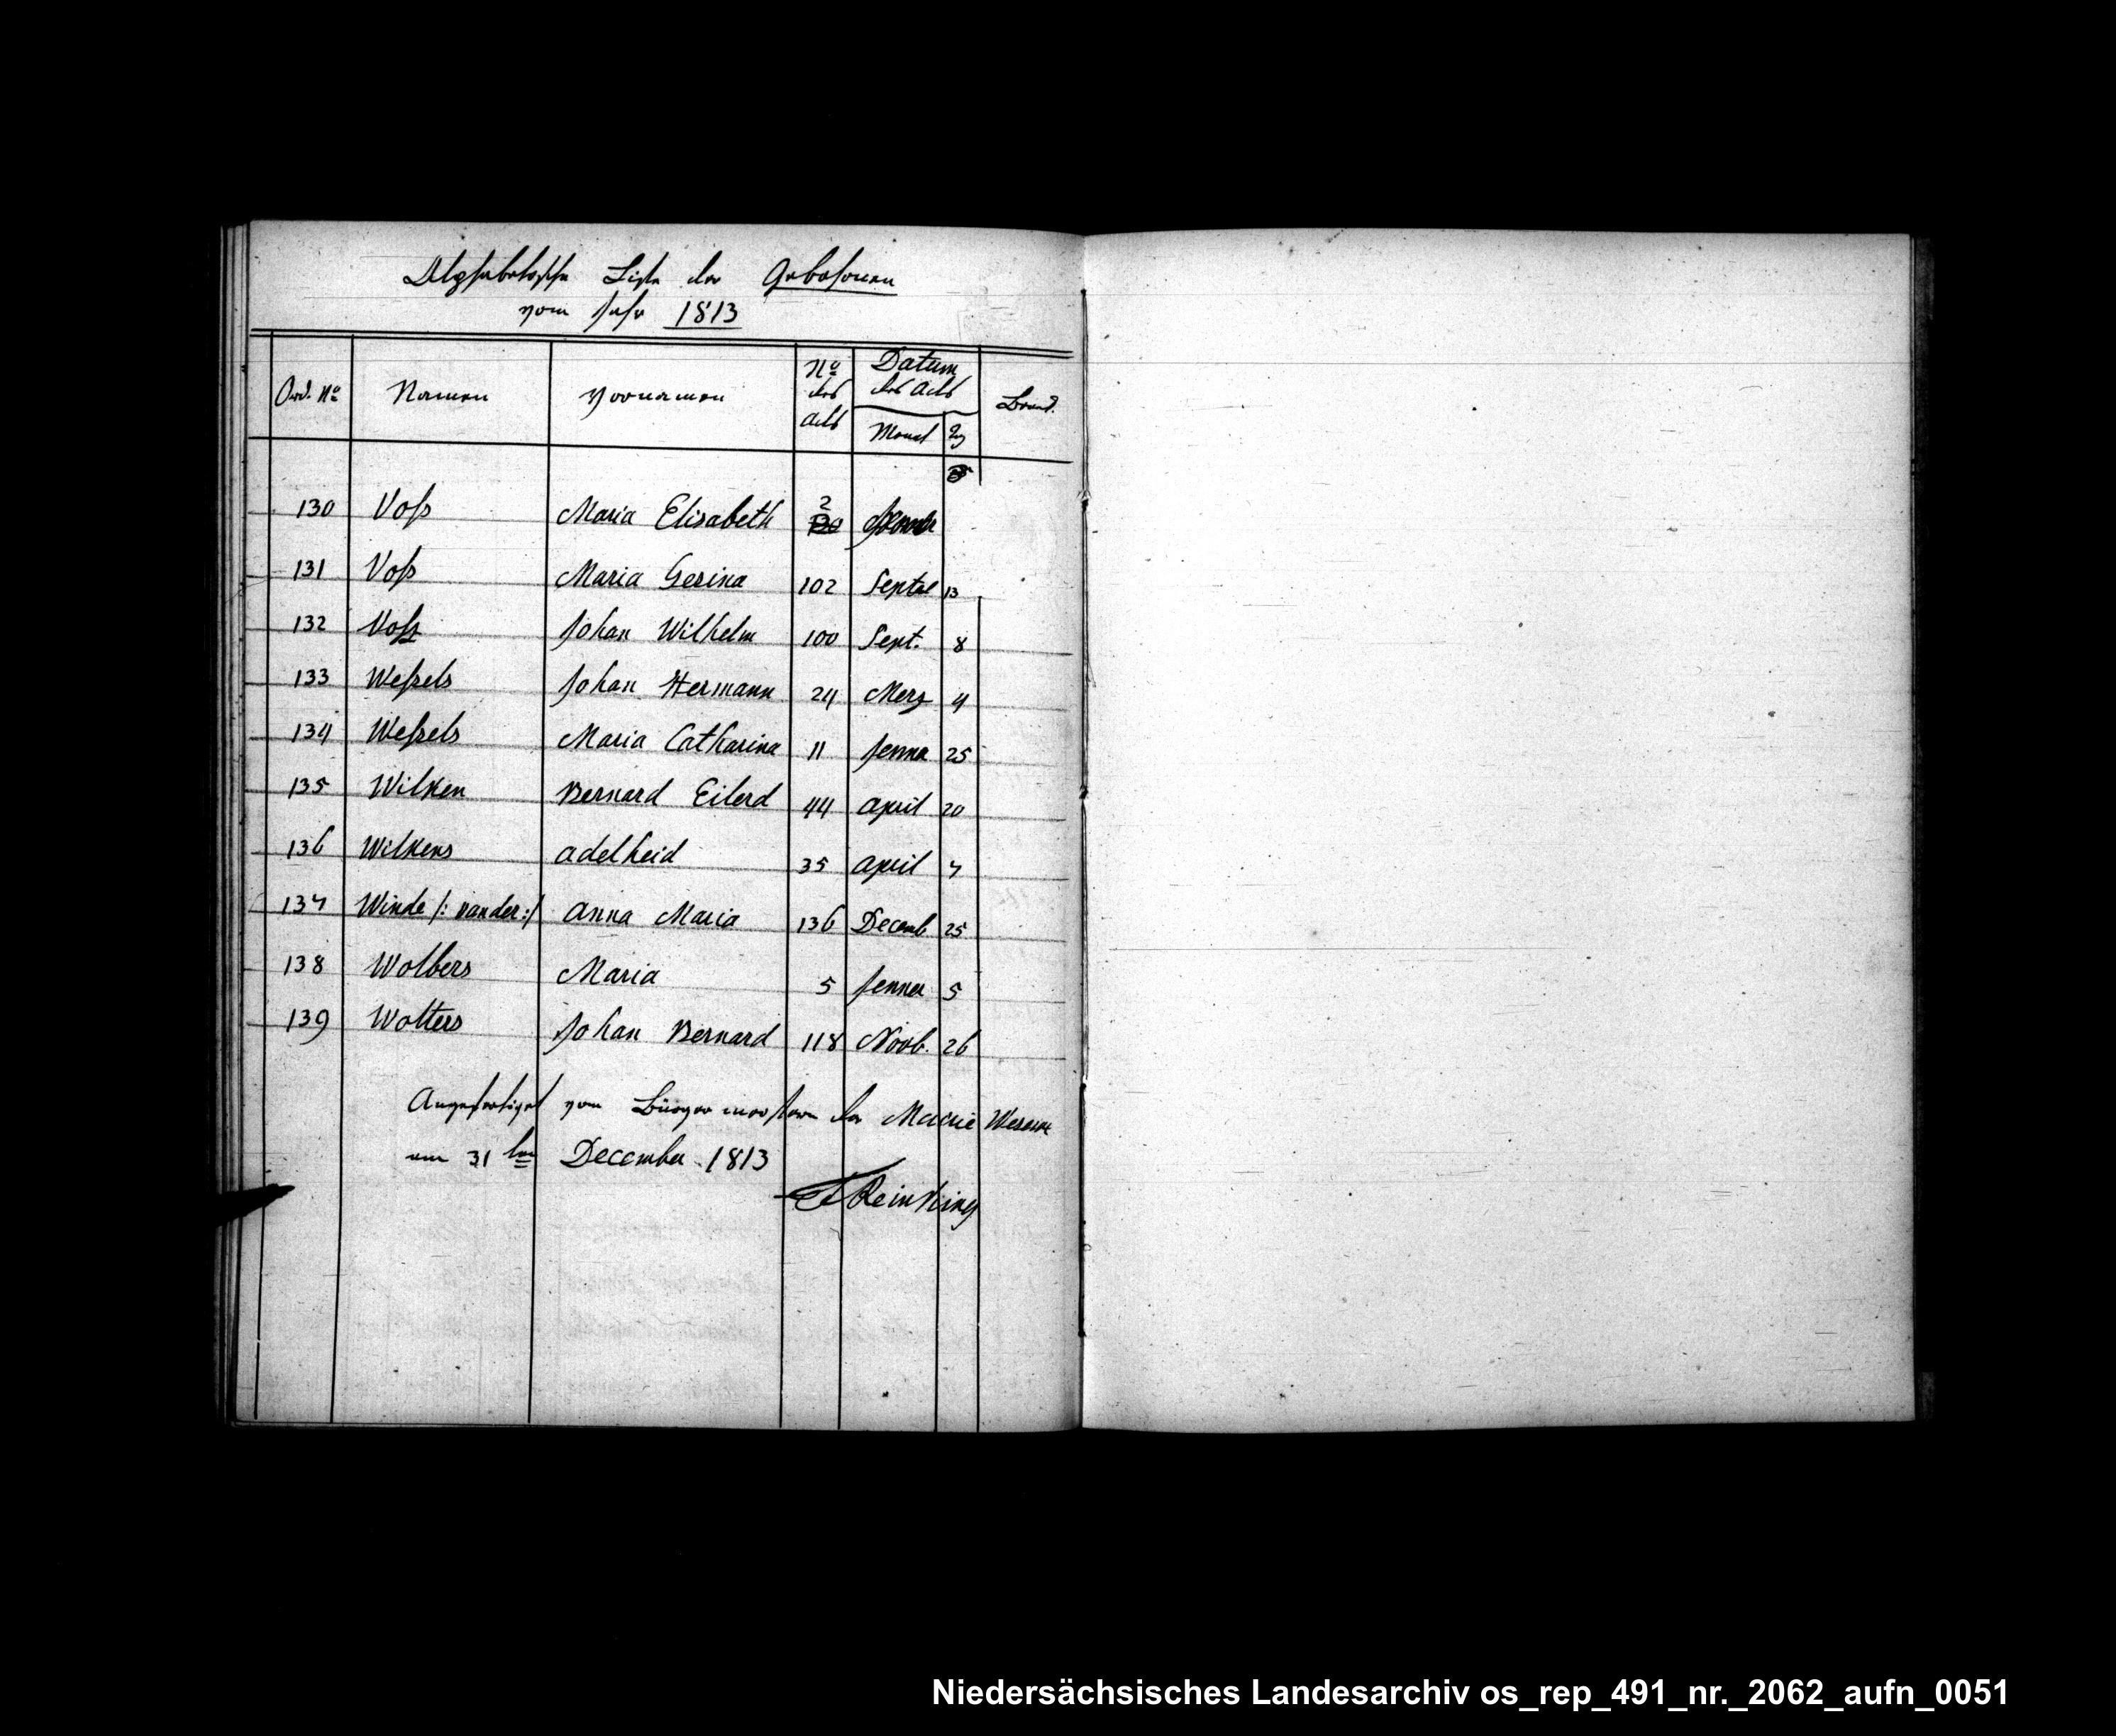 Alphabetische Liste der Gebohrnen
vom Jahr 1813
Ord. No Namen Vornamen No des Acts Datum des Acts Monat Tag
130 Voß Maria Elisabeth 2
131 Voß Maria Gesina 102 Septbr 13
132 Voß Johan Wilhelm 100 Sept. 8
133 Weßels Johan Hermann 24 Merz 4
134 Weßels Maria Catharina 11 Jenner 25
135 Wilken Bernard Eilerd 44 April 20
136 Wilkens Adelheid 35 April 7
137 Winde /: vander :/ Anna Maria 136 Decemb 25
138 Wolbers Maria 5 Jenner 5
139 Wolters Johan Bernard 118 Novb. 26
Angefertiget vom Bürgermeistern der Mairie
am 31ten December 1813
Reinking
Niedersächsisches Landesarchiv os_rep_491_nr._2062_aufn_0051